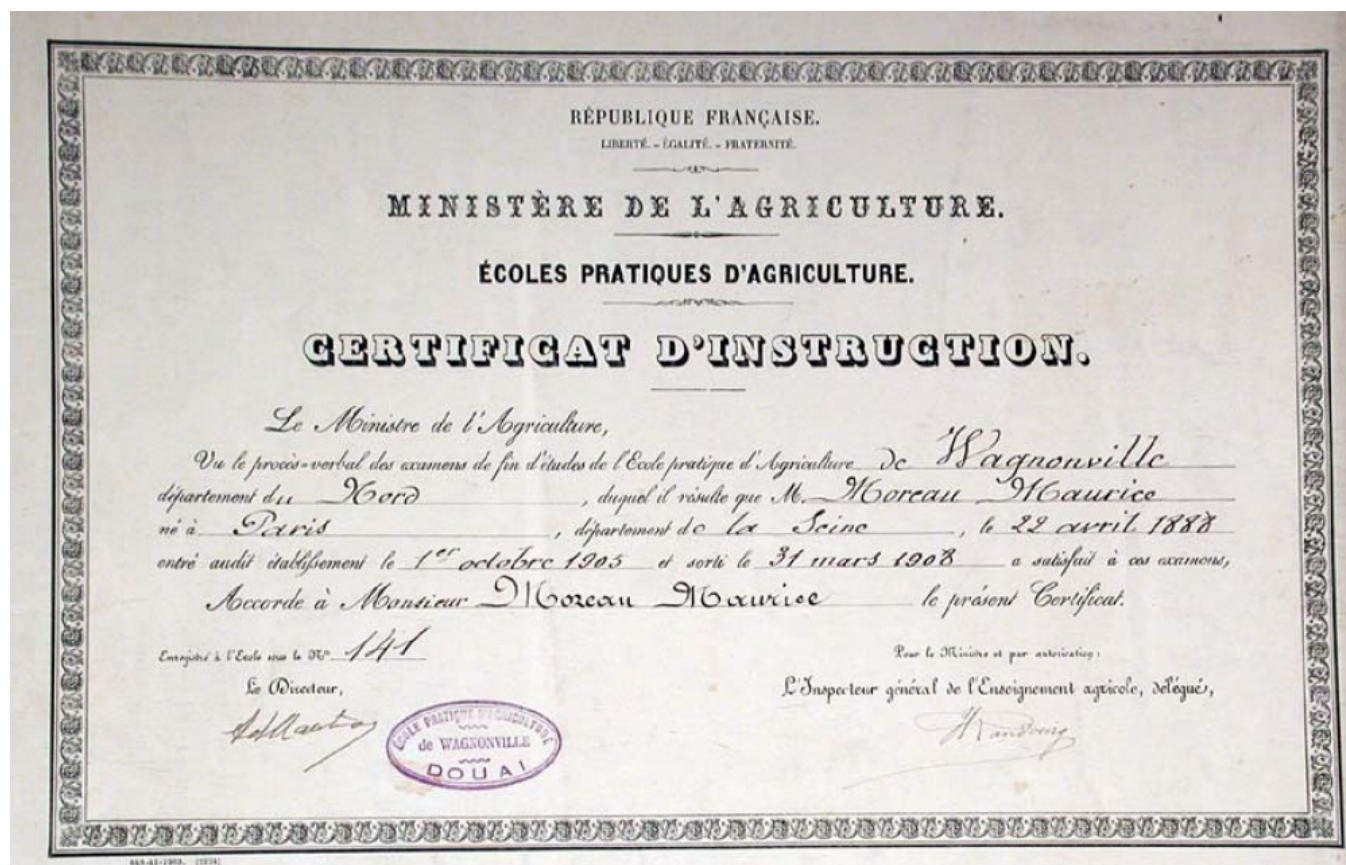 RÉPUBLIQUE FRANÇAISE.
LIBERTÉ. - ÉGALITÉ. - FRATERNITÉ.
MINISTÈRE DE L'AGRICULTURE.
ÉCOLES PRATIQUES D'AGRICULTURE.
CERTIFICAT D'INSTRUCTION.
Le Ministre de l'Agriculture,
Vu le procès-verbal des examens de fin d'études de l'Ecole pratique d'Agriculture de Wagnonville
département du Nord, duquel il résulte que M. Moreau Maurice
né à Paris, département de la Seine, le 22 avril 1888
entré audit établissement le 1er octobre 1905 et sorti le 31 mars 1908 a satisfait à ces examens,
Accorde à Monsieur Moreau Maurice le présent Certificat.
Enregistré à l'Ecole sous le No 141
Pour le Ministre et par autorisation:
Le Directeur,
L'Inspecteur général de l'Enseignement agricole, délégué,
ÉCOLE PRATIQUE D'AGRICULTURE
de WAGNONVILLE
DOUAI